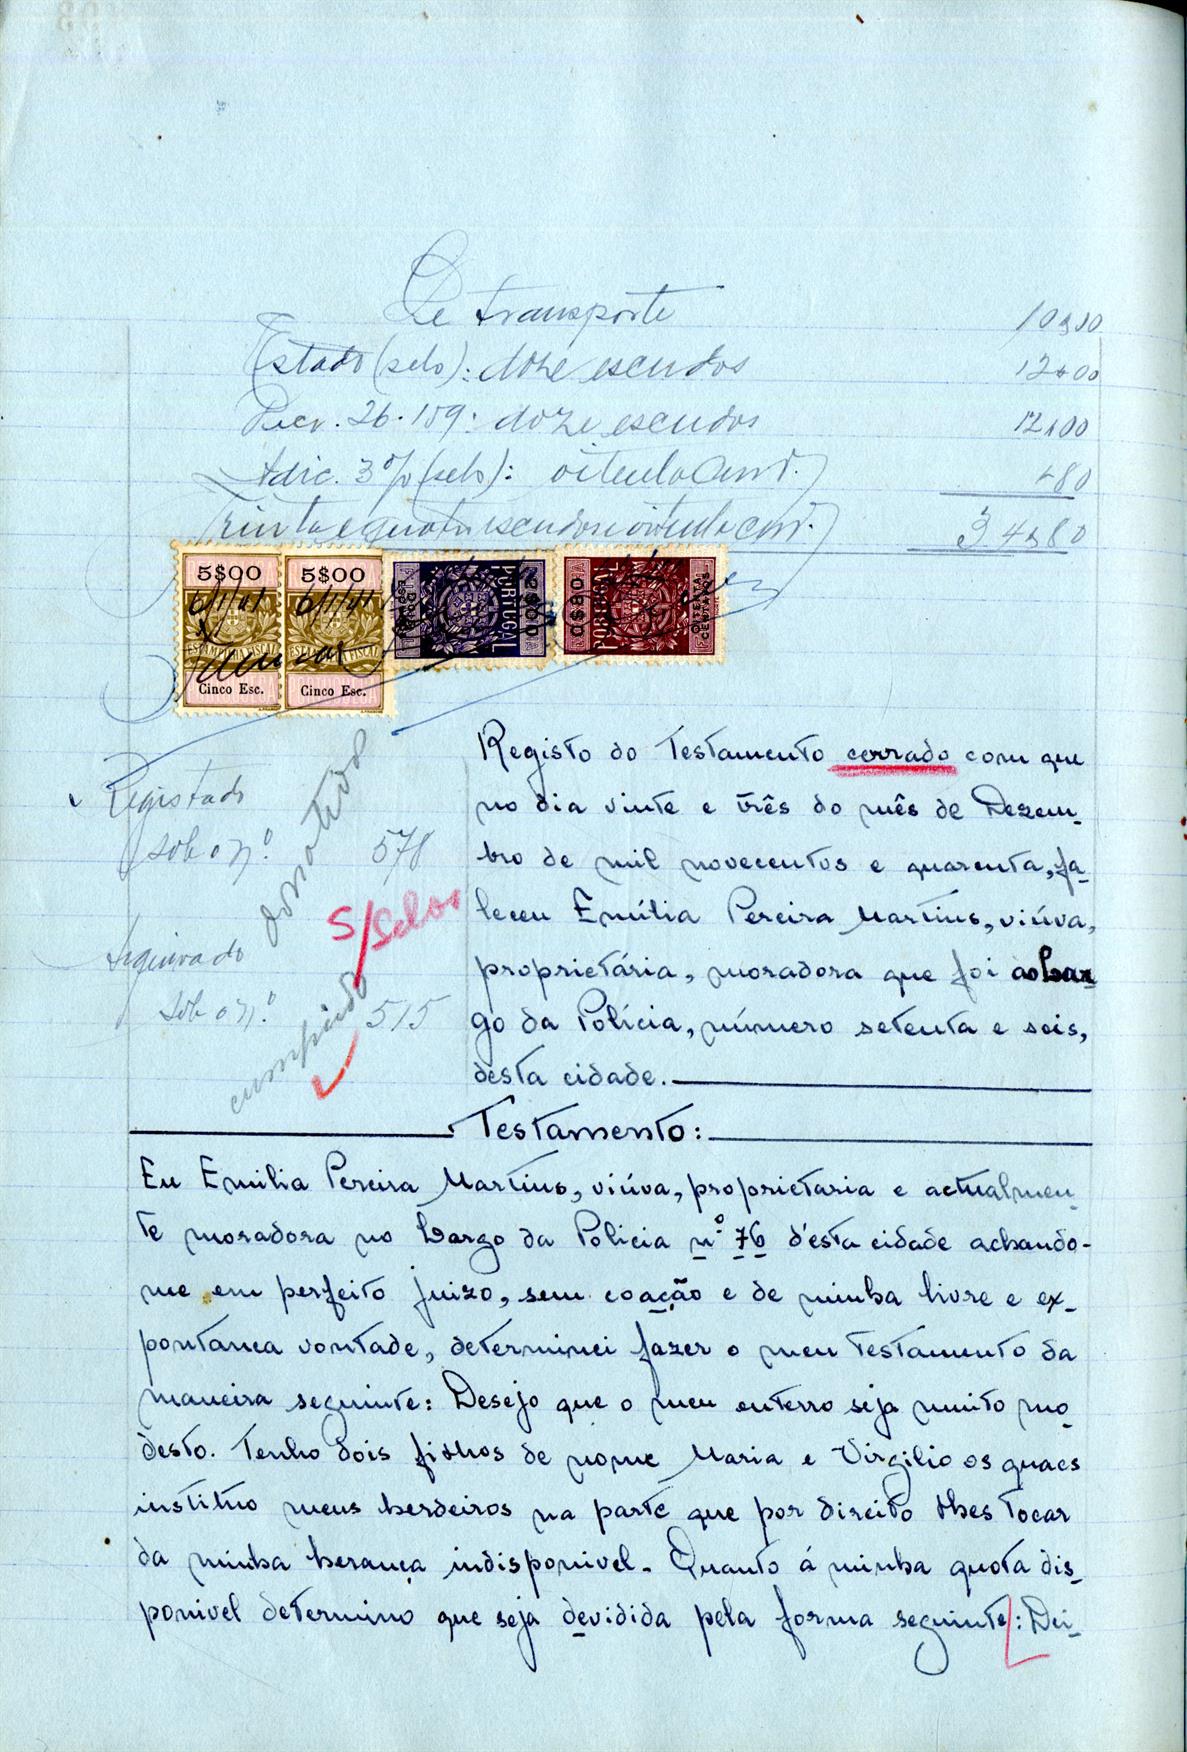 De transporte 10$00
Estado (selo): doze escudos 12$00
Decr. 26.159: doze escudos 12$00
Adic. 3% (selo): oitenta cent. $80
Trinta e quatro escudos e oitenta cent. 34$80
5$00 5$00 PORTUGAL 2$00 0$80 PORTUGAL
6/1/41 6/1/41
ESTAMPILHA FISCAL ESTAMPILHA FISCAL
Cinco Esc. Cinco Esc.
OITENTA CENTAVOS
Registado
sob o nº. 578
Arquivado
sob o nº. 515
S/Selos
cumprido
Registo do Testamento cerrado com que
no dia vinte e três do mês de Dezem-
bro de mil novecentos e quarenta, fa-
leceu Emília Pereira Martins, viúva,
proprietária, moradora que foi ao Lar-
go da Polícia, número setenta e seis,
desta cidade.
Testamento:
Eu Emilia Pereira Martins, viúva, proprietaria e actualmen-
te moradora no Largo da Policia nº 76 d'esta cidade achando-
me em perfeito juizo, sem coação e de minha livre e ex-
pontanea vontade, determinei fazer o meu testamento da
maneira seguinte: Desejo que o meu enterro seja muito mo-
desto. Tenho dois filhos de nome Maria e Virgilio os quaes
instituo meus herdeiros na parte que por direito lhes tocar
da minha herança indisponivel. Quanto á minha quota dis-
ponivel determino que seja devidida pela forma seguinte: Dei-